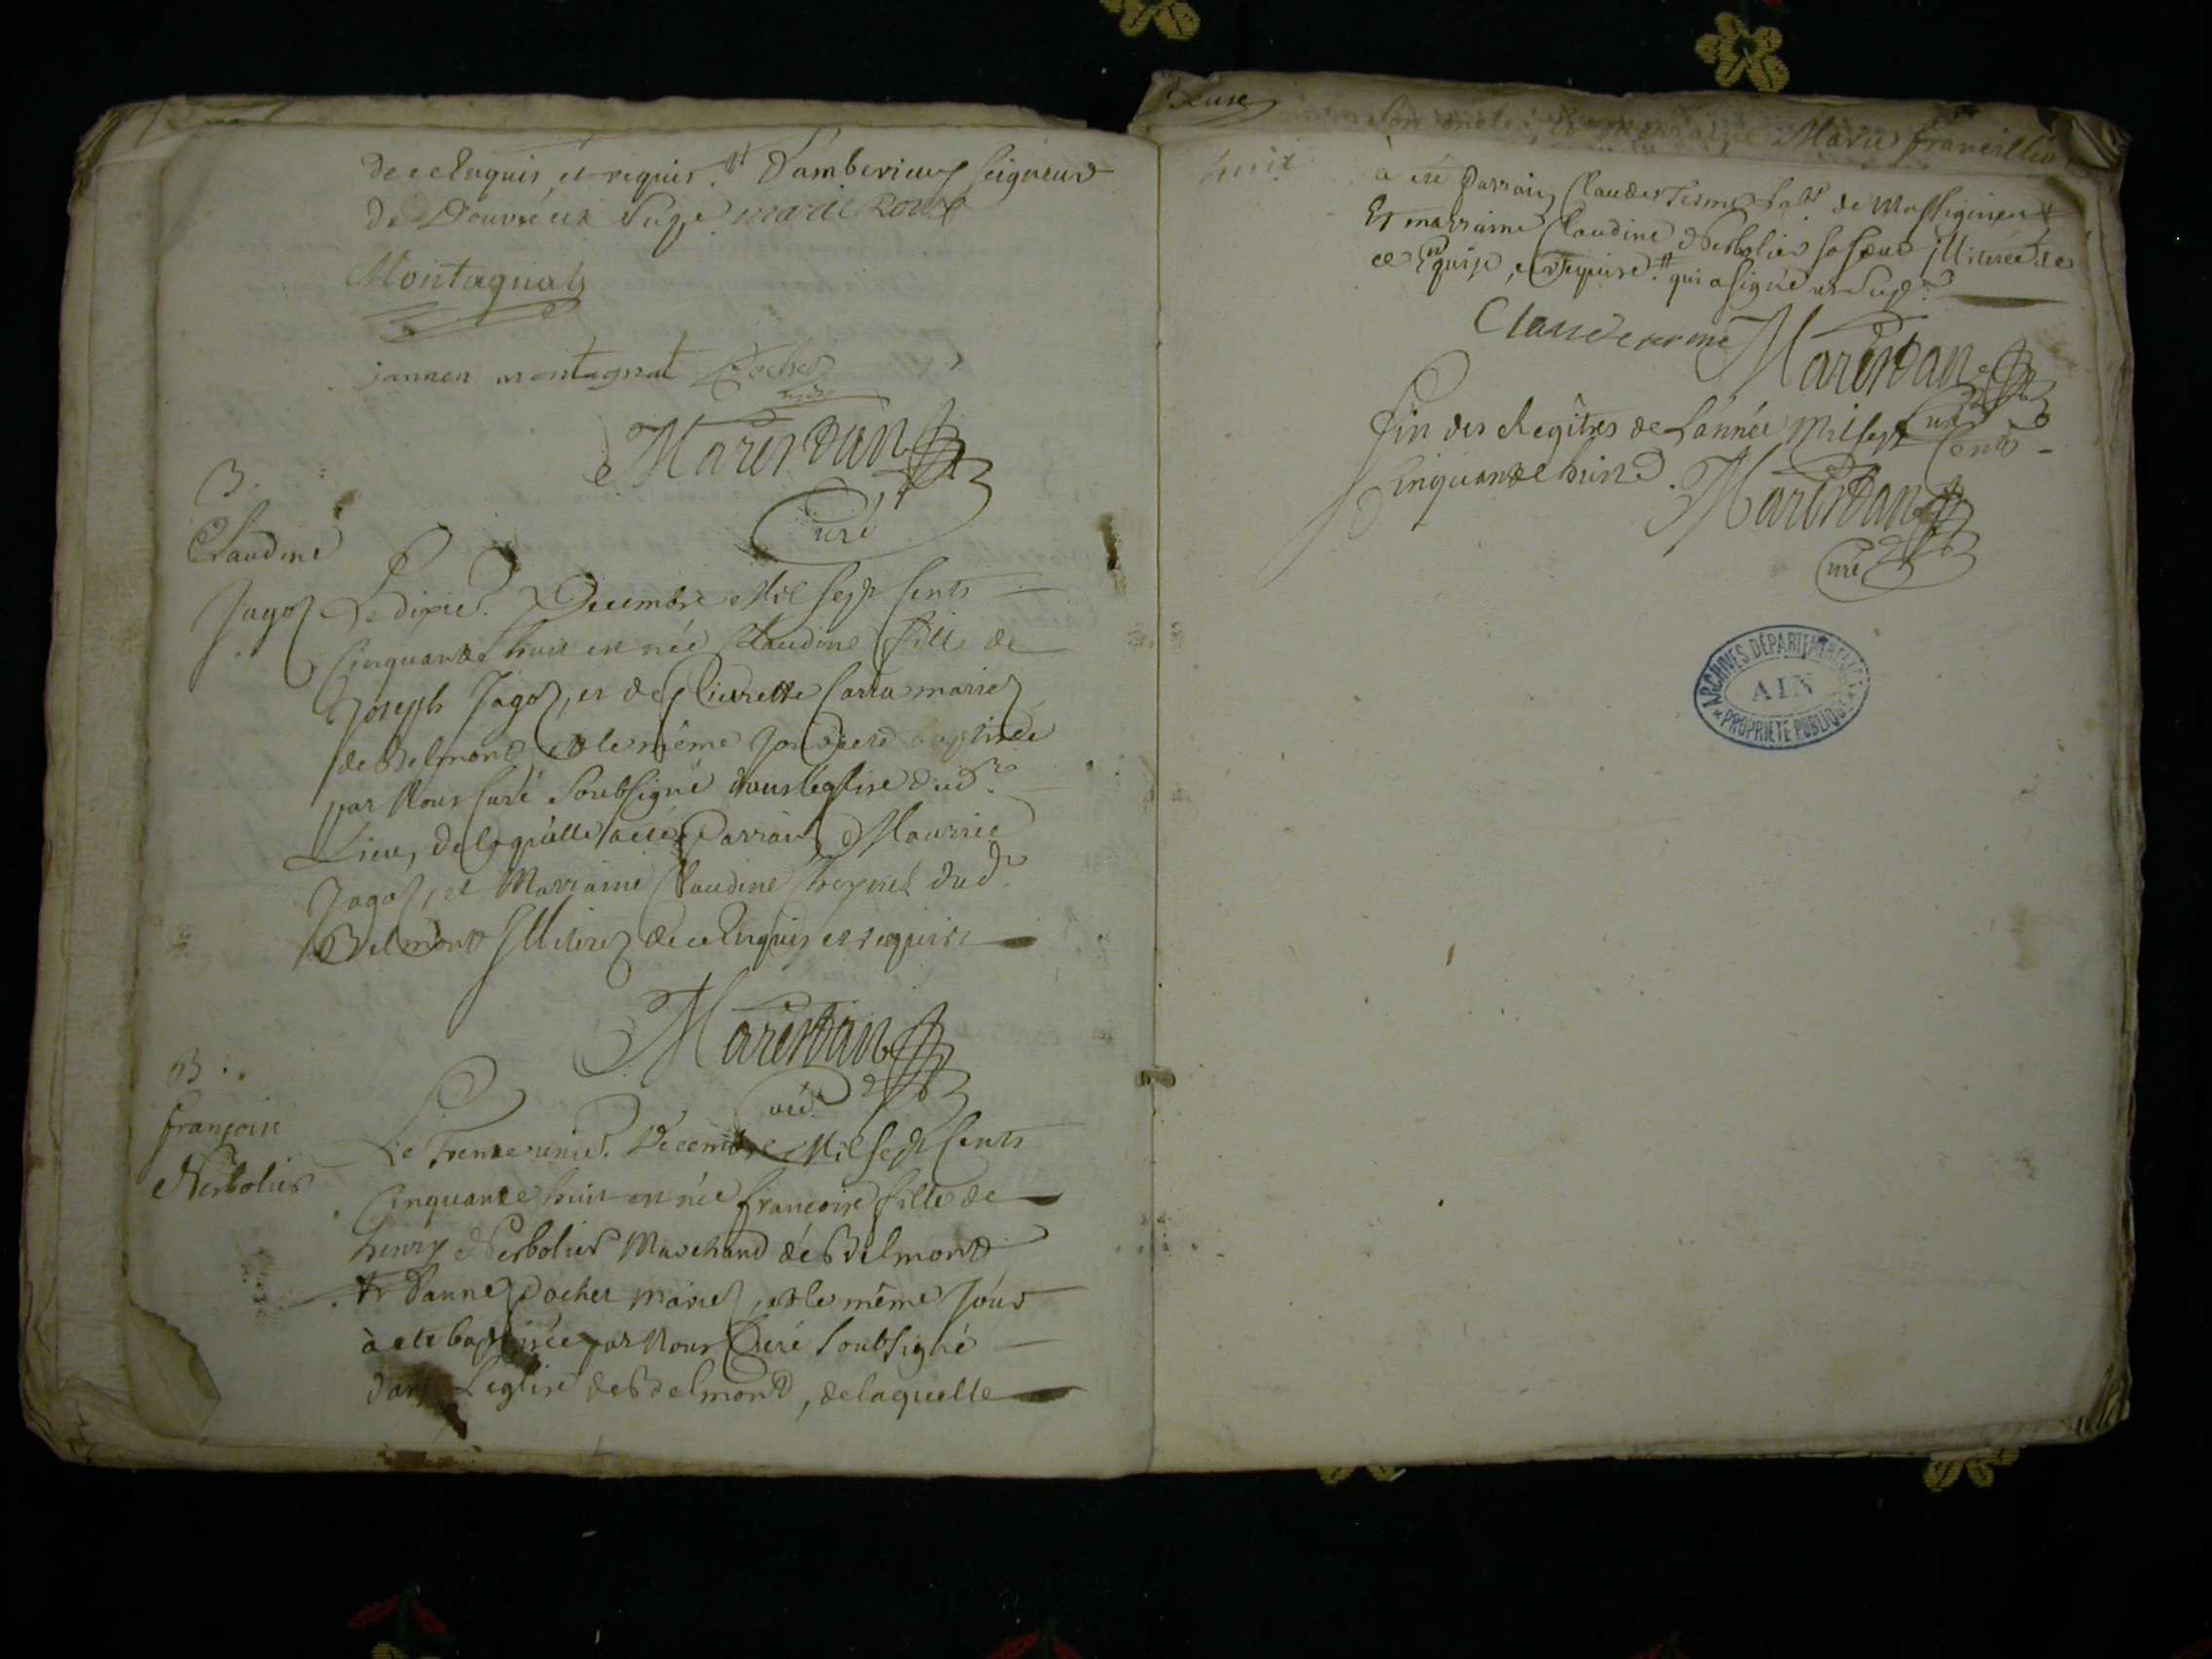 de ce Enquis, et requis. # d'amberieux seigneur
de Douvre ura Supe. marie Roux
Montagnat
jannen montagnat Pochet
Marindan
Curé
B.
Claudine
Jagot
Le dixie. Decembre Mil Sept Cents
Cinquante huit est née Claudine fille de
Joseph Jagot, et de Pierrette Carra mariez
de Belmont, et le même Jour a été baptisée
par Nous Curé Soubsigné dans l'eglise dud.
Lieu, de laquelle a eté Parrain Maurice
Jagot, et Marraine Claudine dud.
Belmont Illiterez de ce Enquis et requis
Marindan
Curé
B.
françoise
Nerbolier
Le Trente unie. Decembre Mil Sept Cents
Cinquante huit est née françoise fille de
henry Nerbolier Marchand de Belmont
et d'anne Pochet mariez, et le même Jour
à eté baptisée par Nous Curé Soubsigné
dans L'eglise de Belmond, de laquelle
Marie francillieu
huit
à eté Parrain Claude Ferme hat. de Massignieu #
Et marraine Claudine Nerbolier sa sœur illiterée de
ce Enquise, et requise. # qui a signé
Claude
Marindan
Curé
fin des Regîtres de L'année Mil sept Cents
Cinquante huit.
Marindan
Curé
ARCHIVES DÉPARTEMENTALES
AIN
PROPRIÉTÉ PUBLIQUE